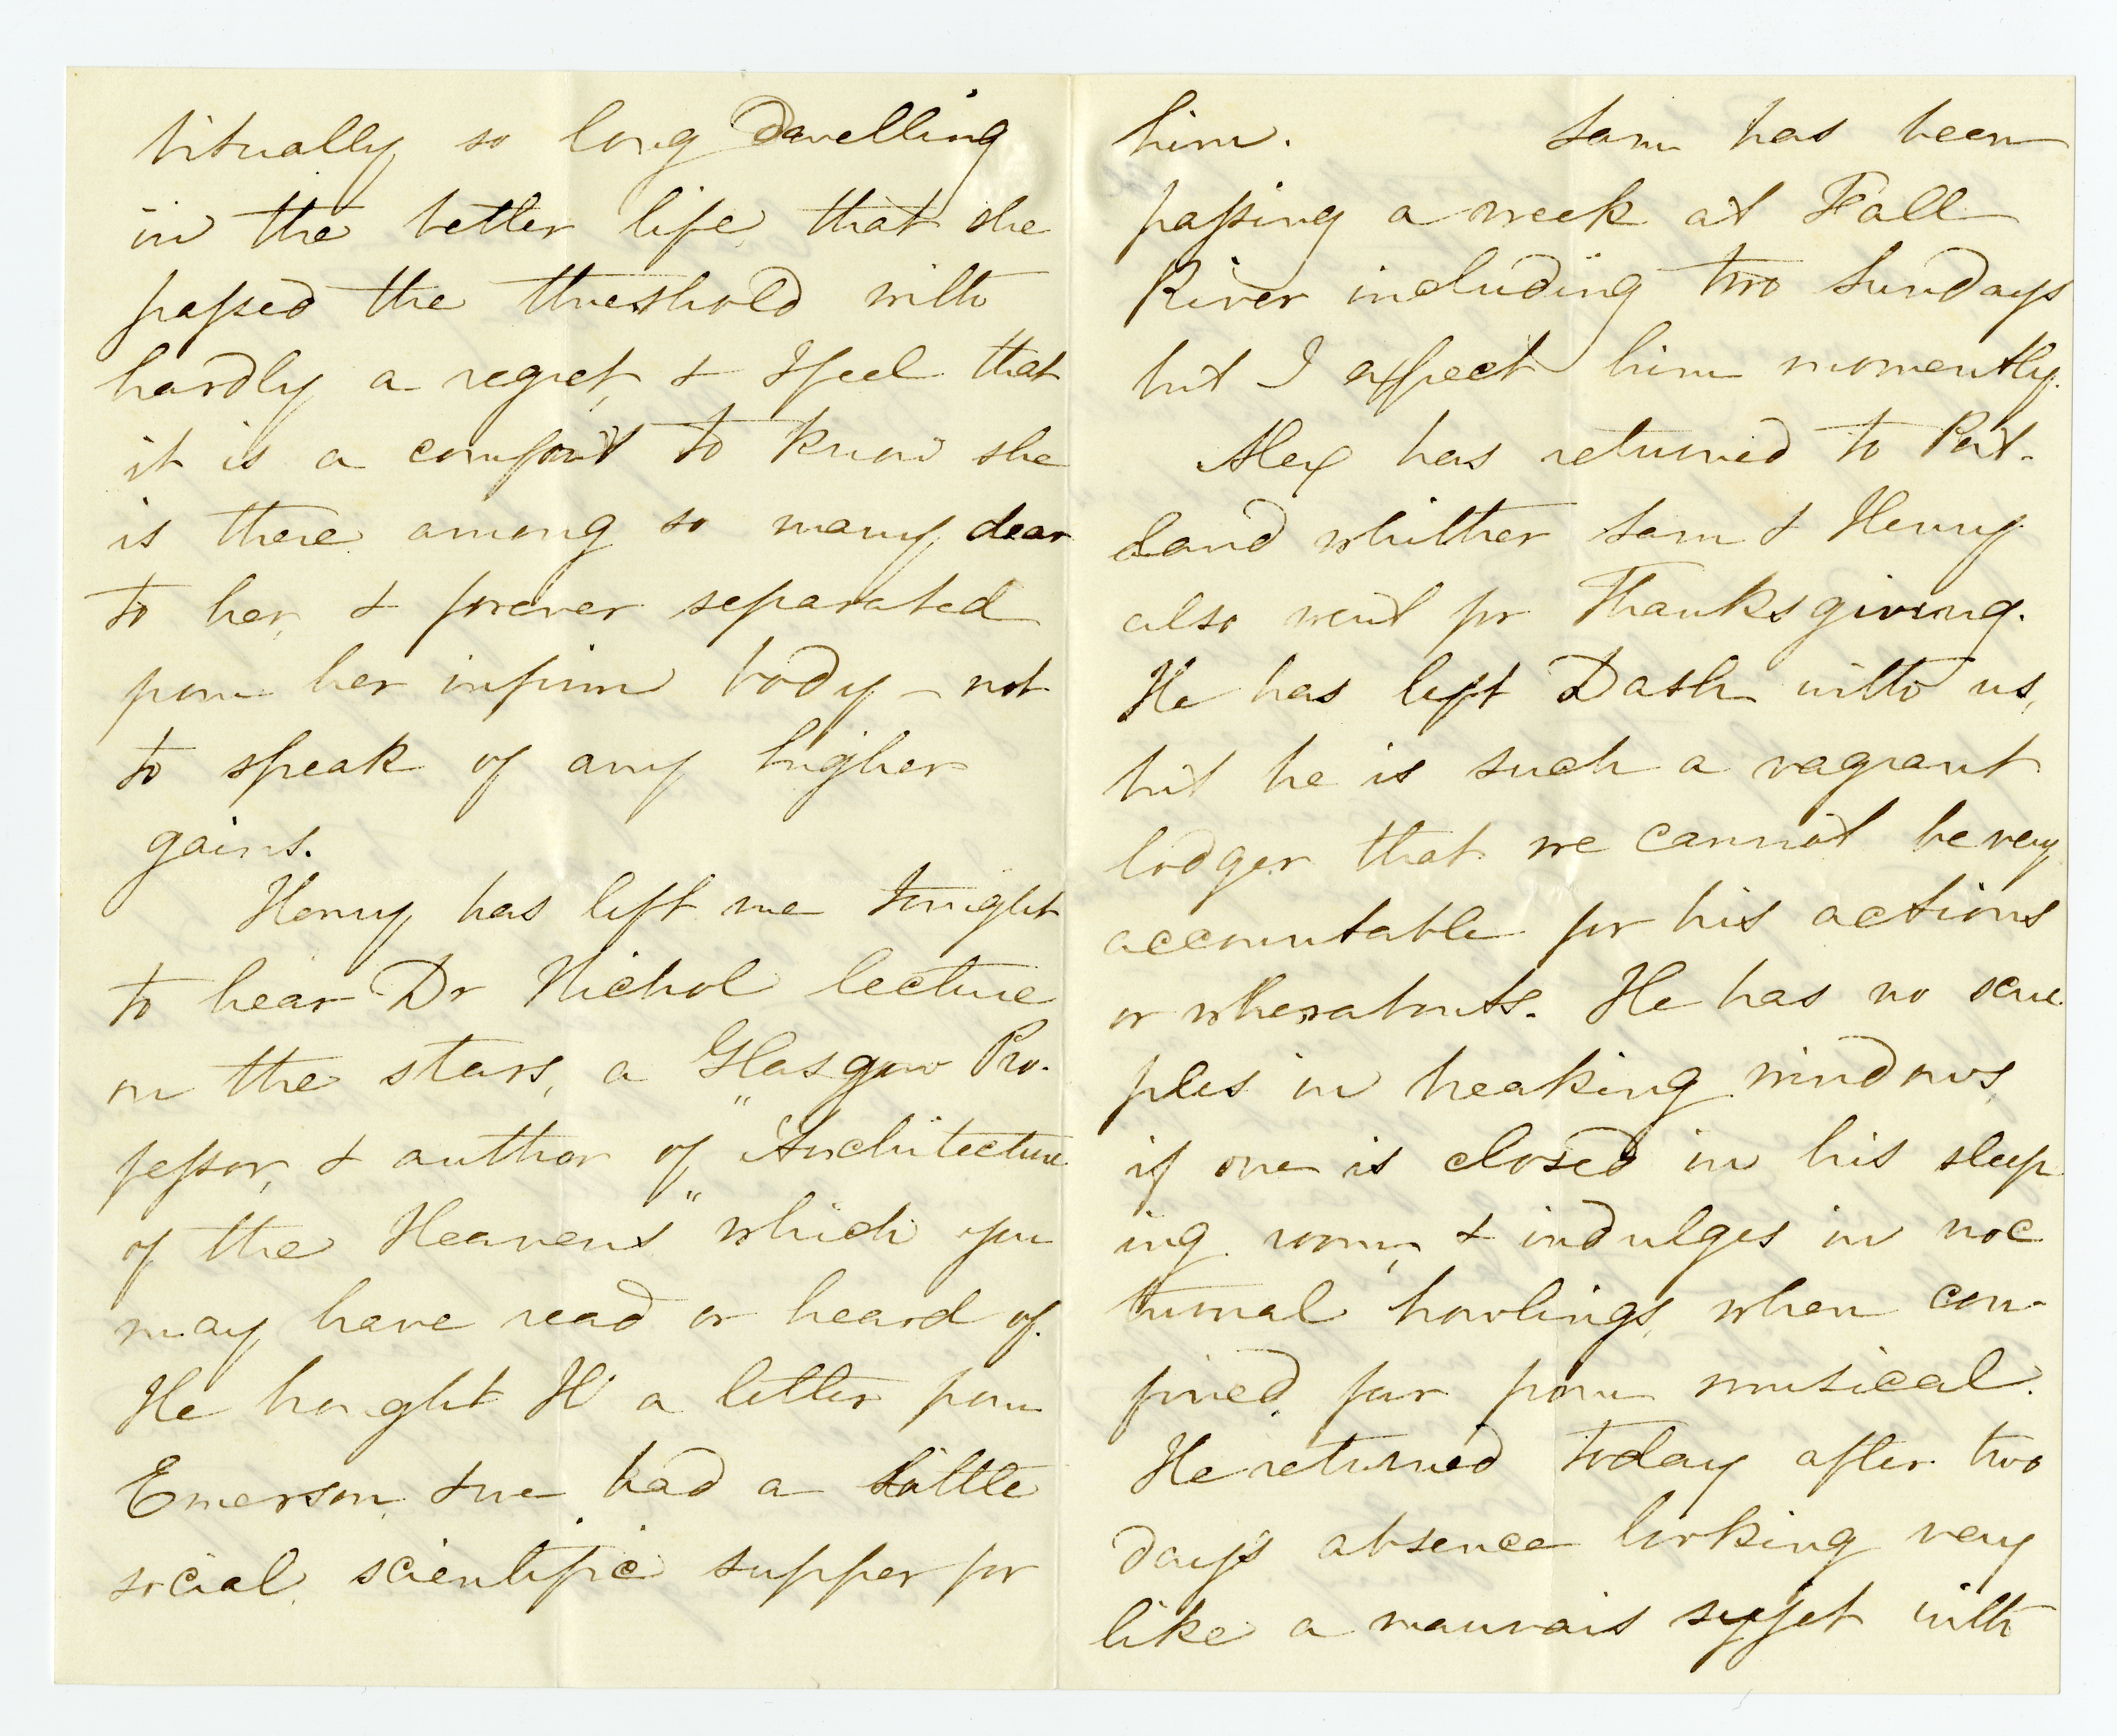 bitually so long dwelling
in the better life, that she
passed the threshold with
hardly a regret, & I feel that
it is a comfort to know she
is there among so many dear
to her, & forever separated
from her infirm body – not
to speak of any higher
gains.
Henry has left me tonight
to hear Dr Nichol lecture
on the stars, a Glasgow Pro-
fessor, & author of "Architecture
of the Heavens" which you
may have read or heard of.
He brought H a letter from
Emerson, & we had a little
social, scientific supper for
him. Sam has been
passing a week at Fall
River including two Sundays
but I expect him momently.
Alex has returned to Port-
land whither Sam & Henry
also went for Thanksgiving.
He has left Dash with us,
but he is such a vagrant
lodger that we cannot be very
accountable for his actions
or wherabouts. He has no scru-
ples in breaking windows,
if one is closed in his sleep
ing room, & indulges in noc
turnal howlings, when con-
fined, far from musical.
He returned today after two
days absence looking very
like a mauvais sujet with